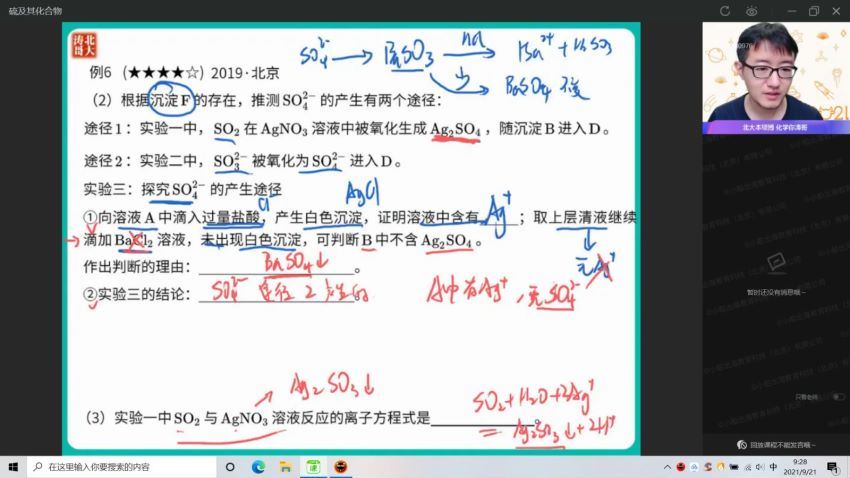 硫及其化合物
北大
涛哥
SO₄²⁻ → BaSO₃ → Ba²⁺ + H₂SO₃
BaSO₄
例6 (★★★★☆) 2019·北京
(2) 根据沉淀F的存在,推测SO₄²⁻的产生有两个途径:
途径1:实验一中,SO₂在AgNO₃溶液中被氧化生成Ag₂SO₄,随沉淀B进入D。
途径2:实验二中,SO₃²⁻被氧化为SO₄²⁻进入D。
实验三:探究SO₄²⁻的产生途径
AgCl
①向溶液A中滴入过量盐酸,产生白色沉淀,证明溶液中含有 Ag⁺ ;取上层清液继续
滴加BaCl₂溶液,未出现白色沉淀,可判断B中不含Ag₂SO₄。
无Ag⁺
作出判断的理由: BaSO₄↓ 。
②实验三的结论: SO₄²⁻ 途径2产生的 。
A中有Ag⁺,无SO₄²⁻
Ag₂SO₃↓
SO₂+H₂O+2Ag⁺
(3) 实验一中SO₂与AgNO₃溶液反应的离子方程式是 。
= Ag₂SO₃↓+2H⁺
北大本硕博 化学你涛哥
暂时还没有消息哦~
只看老师
回放课程不能发言哦~
在这里输入你要搜索的内容
中
9:28
2021/9/21